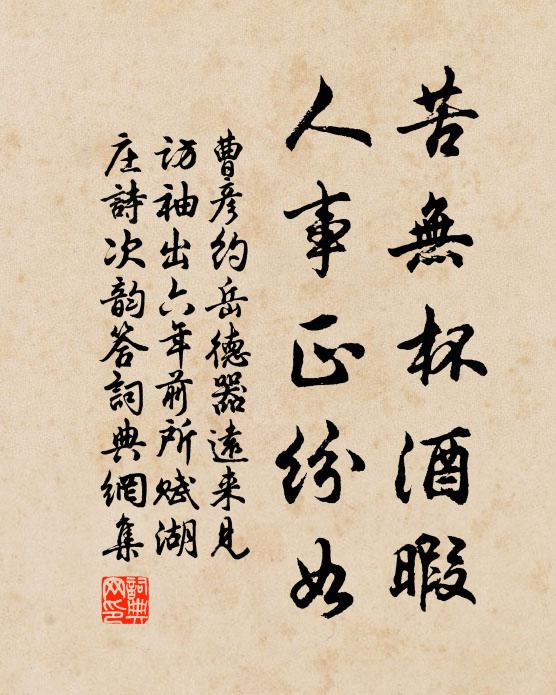 苦無杯酒暇
人事正紛如
曹彥約岳德器遠来見
訪袖出六年前所赋湖
庄詩次韵答詞典網集
詞典網印